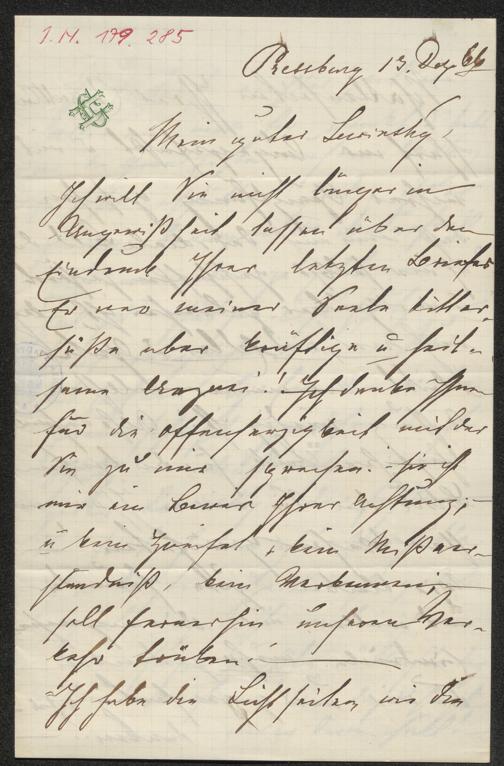 I.N. 179.285
Pressburg 13. Dez 66
Mein guter Lewinsky,
Ich will Sie nicht länger in
Ungewißheit lassen über den
Eindruck Ihres letzten Briefes
Er war meiner Seele bitter-
süße aber kräftige u heil-
same Arznei! Ich danke Ihnen
für die Offenherzigkeit mit der
Sie zu mir sprechen: – sie ist
mir ein Beweis Ihrer Achtung;
u kein Zweifel, kein Mißver-
ständniß, kein Verkennen,
soll fernerhin unseren Ver-
kehr trüben! –
Ich habe die Lichtseiten wie die